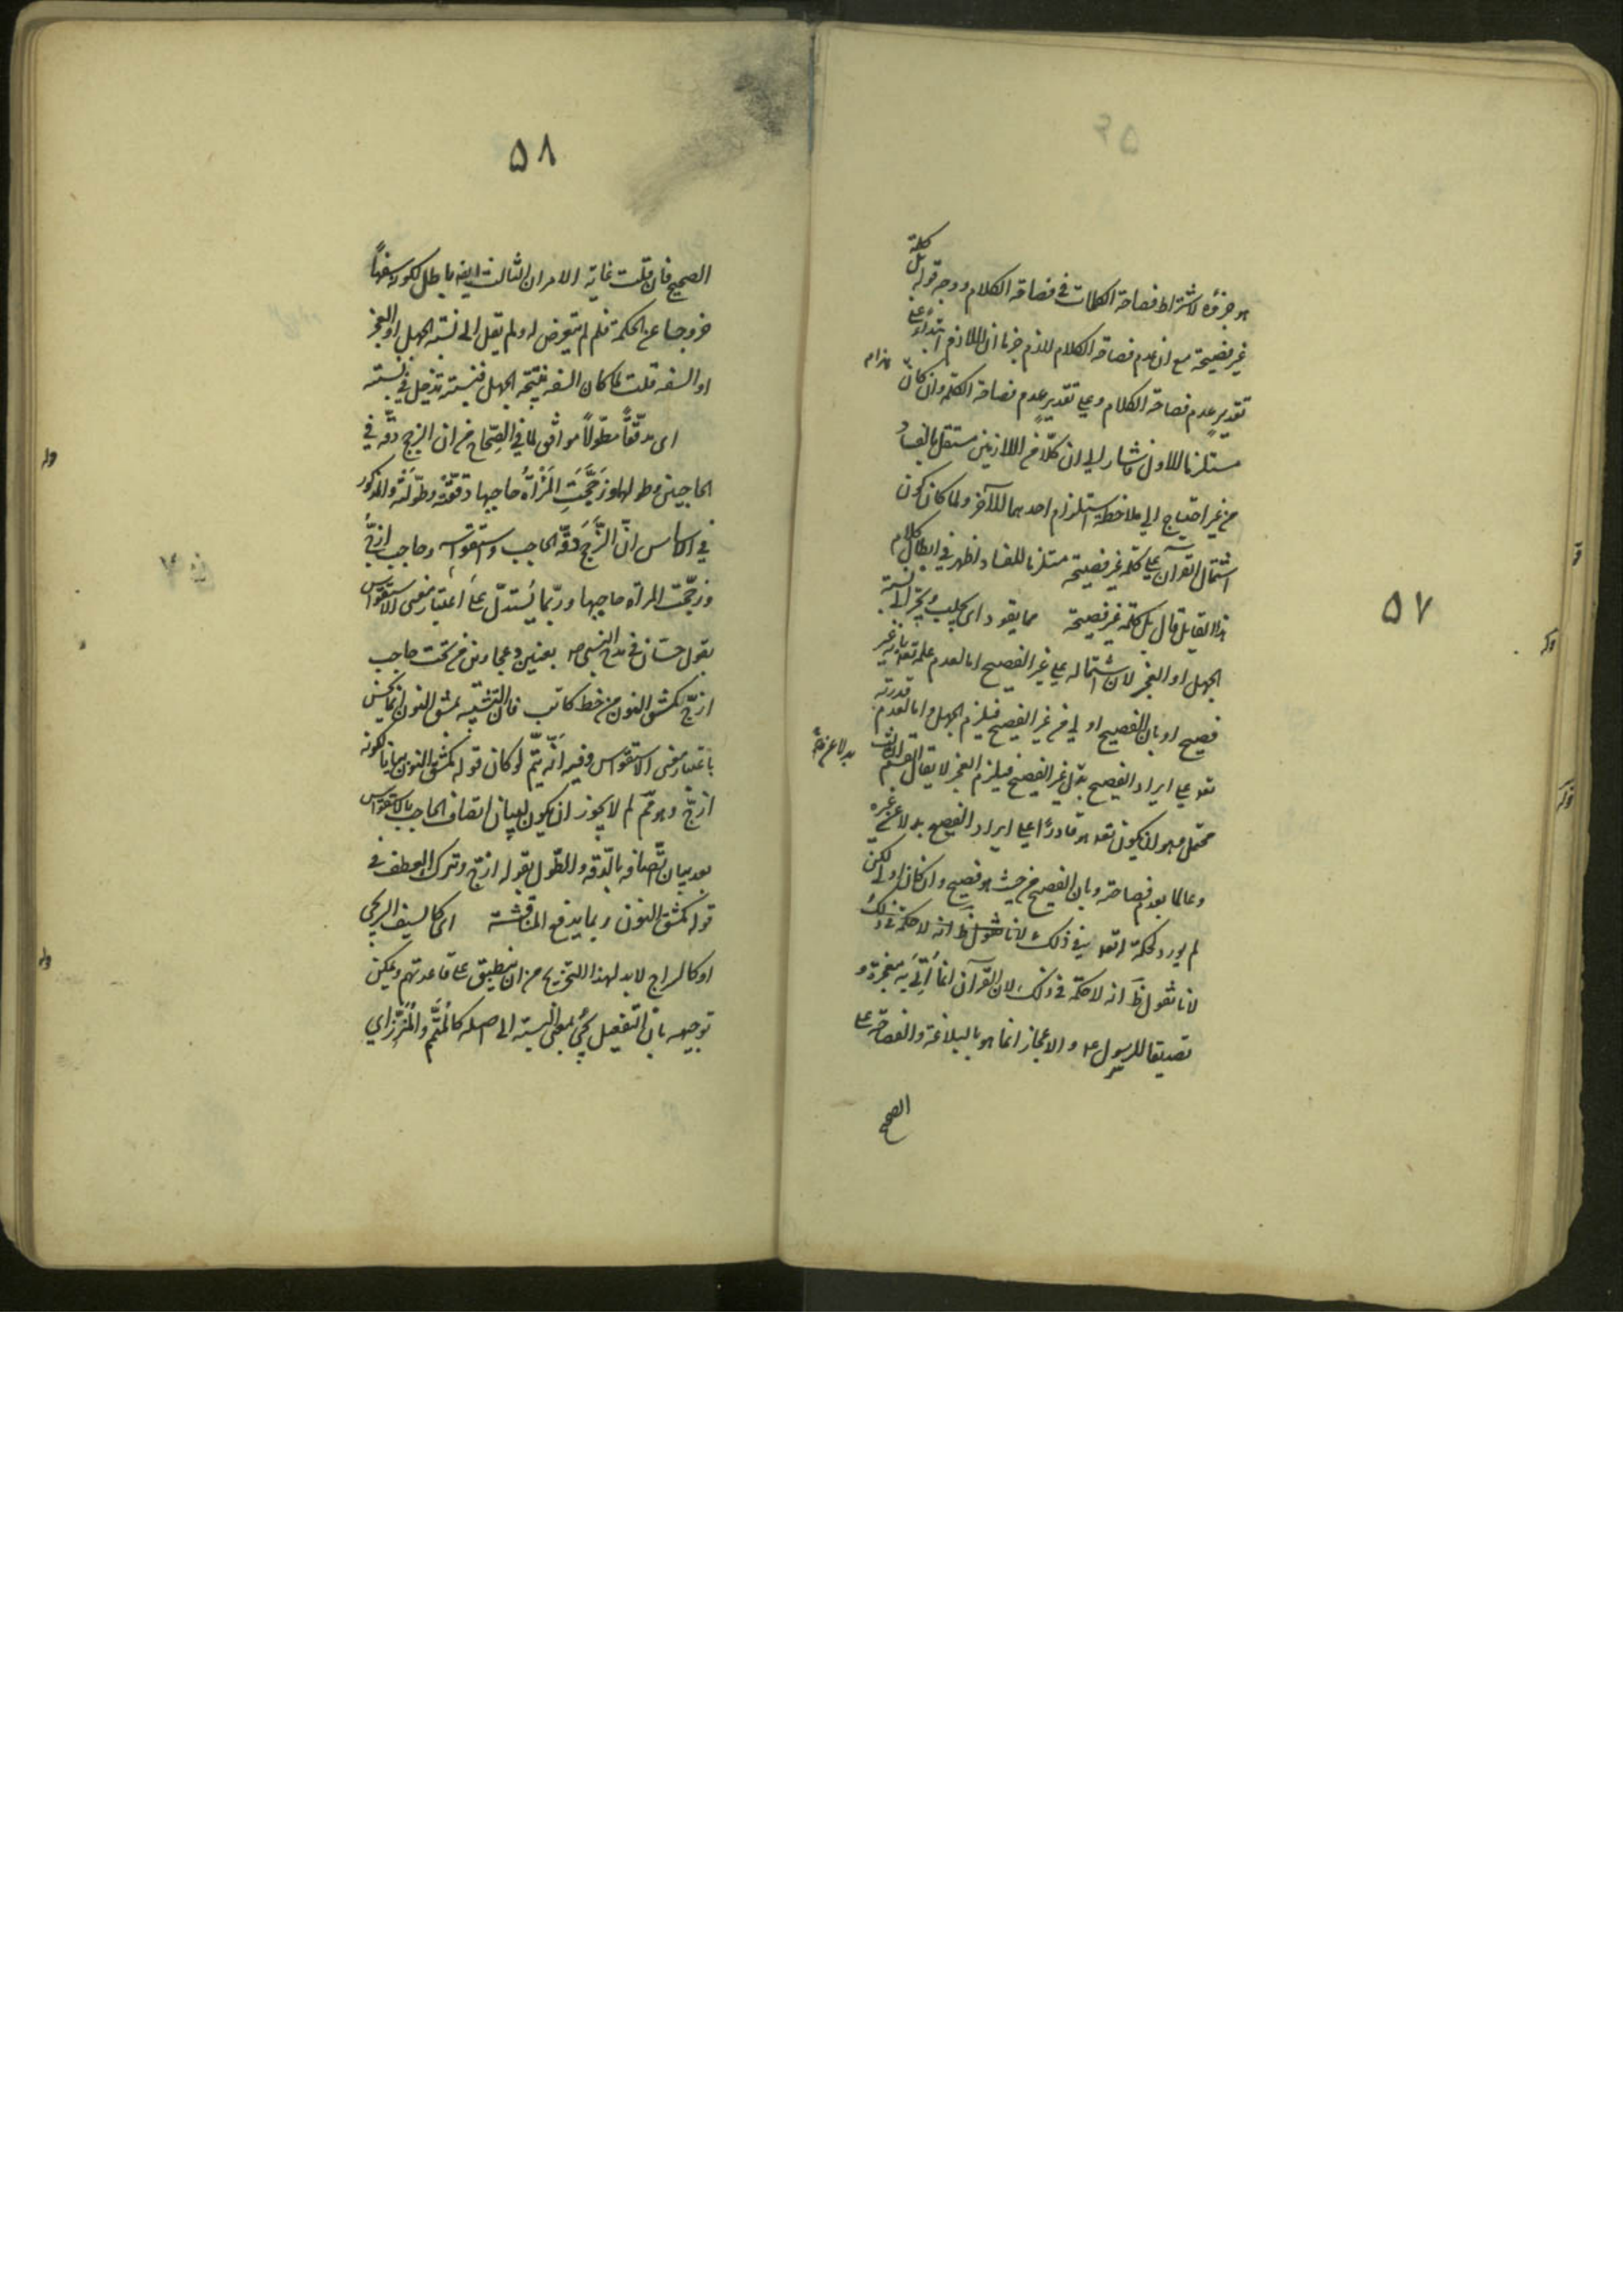 ۵۷
هو جزؤه لاشتراط فصاحة الكلمات في فصاحة الكلام ووجه قوله بل كلمة
غير فصيحة مع ان عدم فصاحة الكلام لازم جزما ان اللازم ابتداء على
تقدير عدم فصاحة الكلام وعلى تقدير عدم فصاحة الكلمة وان كان
مستلزما للاول فاشار الى ان كلا من اللازمين مستقل بالفساد
من غير احتياج الى ملاحظة استلزام احدهما للآخر ولما كان كون
اشتمال القرآن على كلمة غير فصيحة مستلزما للفساد اظهر في ابطال كلام
هذا القايل قال بل كلمة غير فصيحة مما يقود اى يجلب ويجر الى نسبة
الجهل او العجز لان اشتماله على غير الفصيح اما لعدم علمه تعالى بانه غير
فصيح او بان الفصيح اولى من غير الفصيح فيلزم الجهل واما لعدم قدرته
تعه على ايراد الفصيح بدل غير الفصيح فيلزم العجز لا يقال القسم الثالث
محتمل وهو ان يكون تعه هو قادرًا على ايراد الفصيح بدلا عن غيره
وعالما بعدم فصاحته وبان الفصيح من حيث هو فصيح وان كان اولى لكن
لم يورد لحكمة له تعه في ذلك لانا نقول ظ انه لا حكمة في ذلك
لانا نقول ظ انه لا حكمة في ذلك لان القرآن انما أتي به معجزة و
تصديقا للرسول عم والاعجاز انما هو بالبلاغة والفصاحة على
الصحيح
۵۸
الصحيح فان قلت غاية الامر ان الثالث ايضه باطل لكونه سفهًا
خروجا عن الحكمة فلم لم يتعرض له ولم يقل الى نسبة الجهل او العجز
او السفه قلت لما كان السفه نتيجة الجهل فنسبته تدخل في نسبته
اى مدقّقًا مطوّلًا موافق لما في الصّحاح من ان الزجج دقّة في
الحاجبين وطولهما وزَجَّجَتِ المَرْأةُ حاجبها دققّتْه وطوّلَتْه والمذكور
في الاساس انّ الزَّجَجَ دقّة الحاجب واستقواسه وحاجب ازجُّ
وزجّجت المرأة حاجبها وربّما يُستدلّ على اعتبار معنى الاستقواس
بقول حسّان في مدح النبي صم بعينين دعجاوين من تحت حاجب
ازجّ كمشق النون من خط كاتب فان التشبيه بمشق النون انما يحسن
باعتبار معنى الاستقواس وفيه انّه يتمّ لو كان قوله كمشق النون بيانا لكونه
ازجّ وهو مم لم لا يجوز ان يكون لبيان اتصاف الحاجب بالاستقواس
بعد بيان اتّصافه بالدّقة والطّول بقوله ازجّ وترك العطف في
قوله كمشق النون ربما يدفع المناقشة اى كالسيف السريجي
او كالسراج لابد لهذا التخريج من ان ينطبق على قاعدتهم ويمكن
توجيهه بان التفعيل يجئ بمعنى النسبة الى اصله كالمُتَمَّم والمُنَزَّر اي